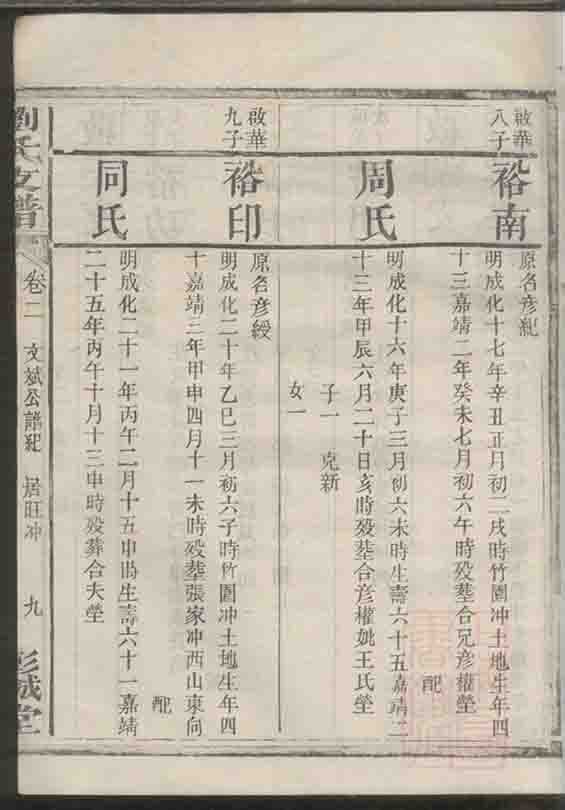 啟華
八子
裕南
原名彦紀
明成化十七年辛丑正月初二戌時竹園冲土地生年四
十三嘉靖二年癸未七月初六午時殁塟合兄彦權塋
配
周氏
明成化十六年庚子三月初六未時生壽六十五嘉靖二
十三年甲辰六月二十日亥時殁塟合彦權妣王氏塋
子一 克新
女一
啟華
九子
裕印
原名彦綬
明成化二十年乙巳三月初六子時竹園冲土地生年四
十嘉靖三年甲申四月十一未時殁塟張家冲西山東向
配
同氏
明成化二十一年丙午二月十五申時生壽六十一嘉靖
二十五年丙午十月十三申時殁葬合夫塋
劉氏支譜
卷二
文斌公譜紀
居旺冲
九
彭城堂